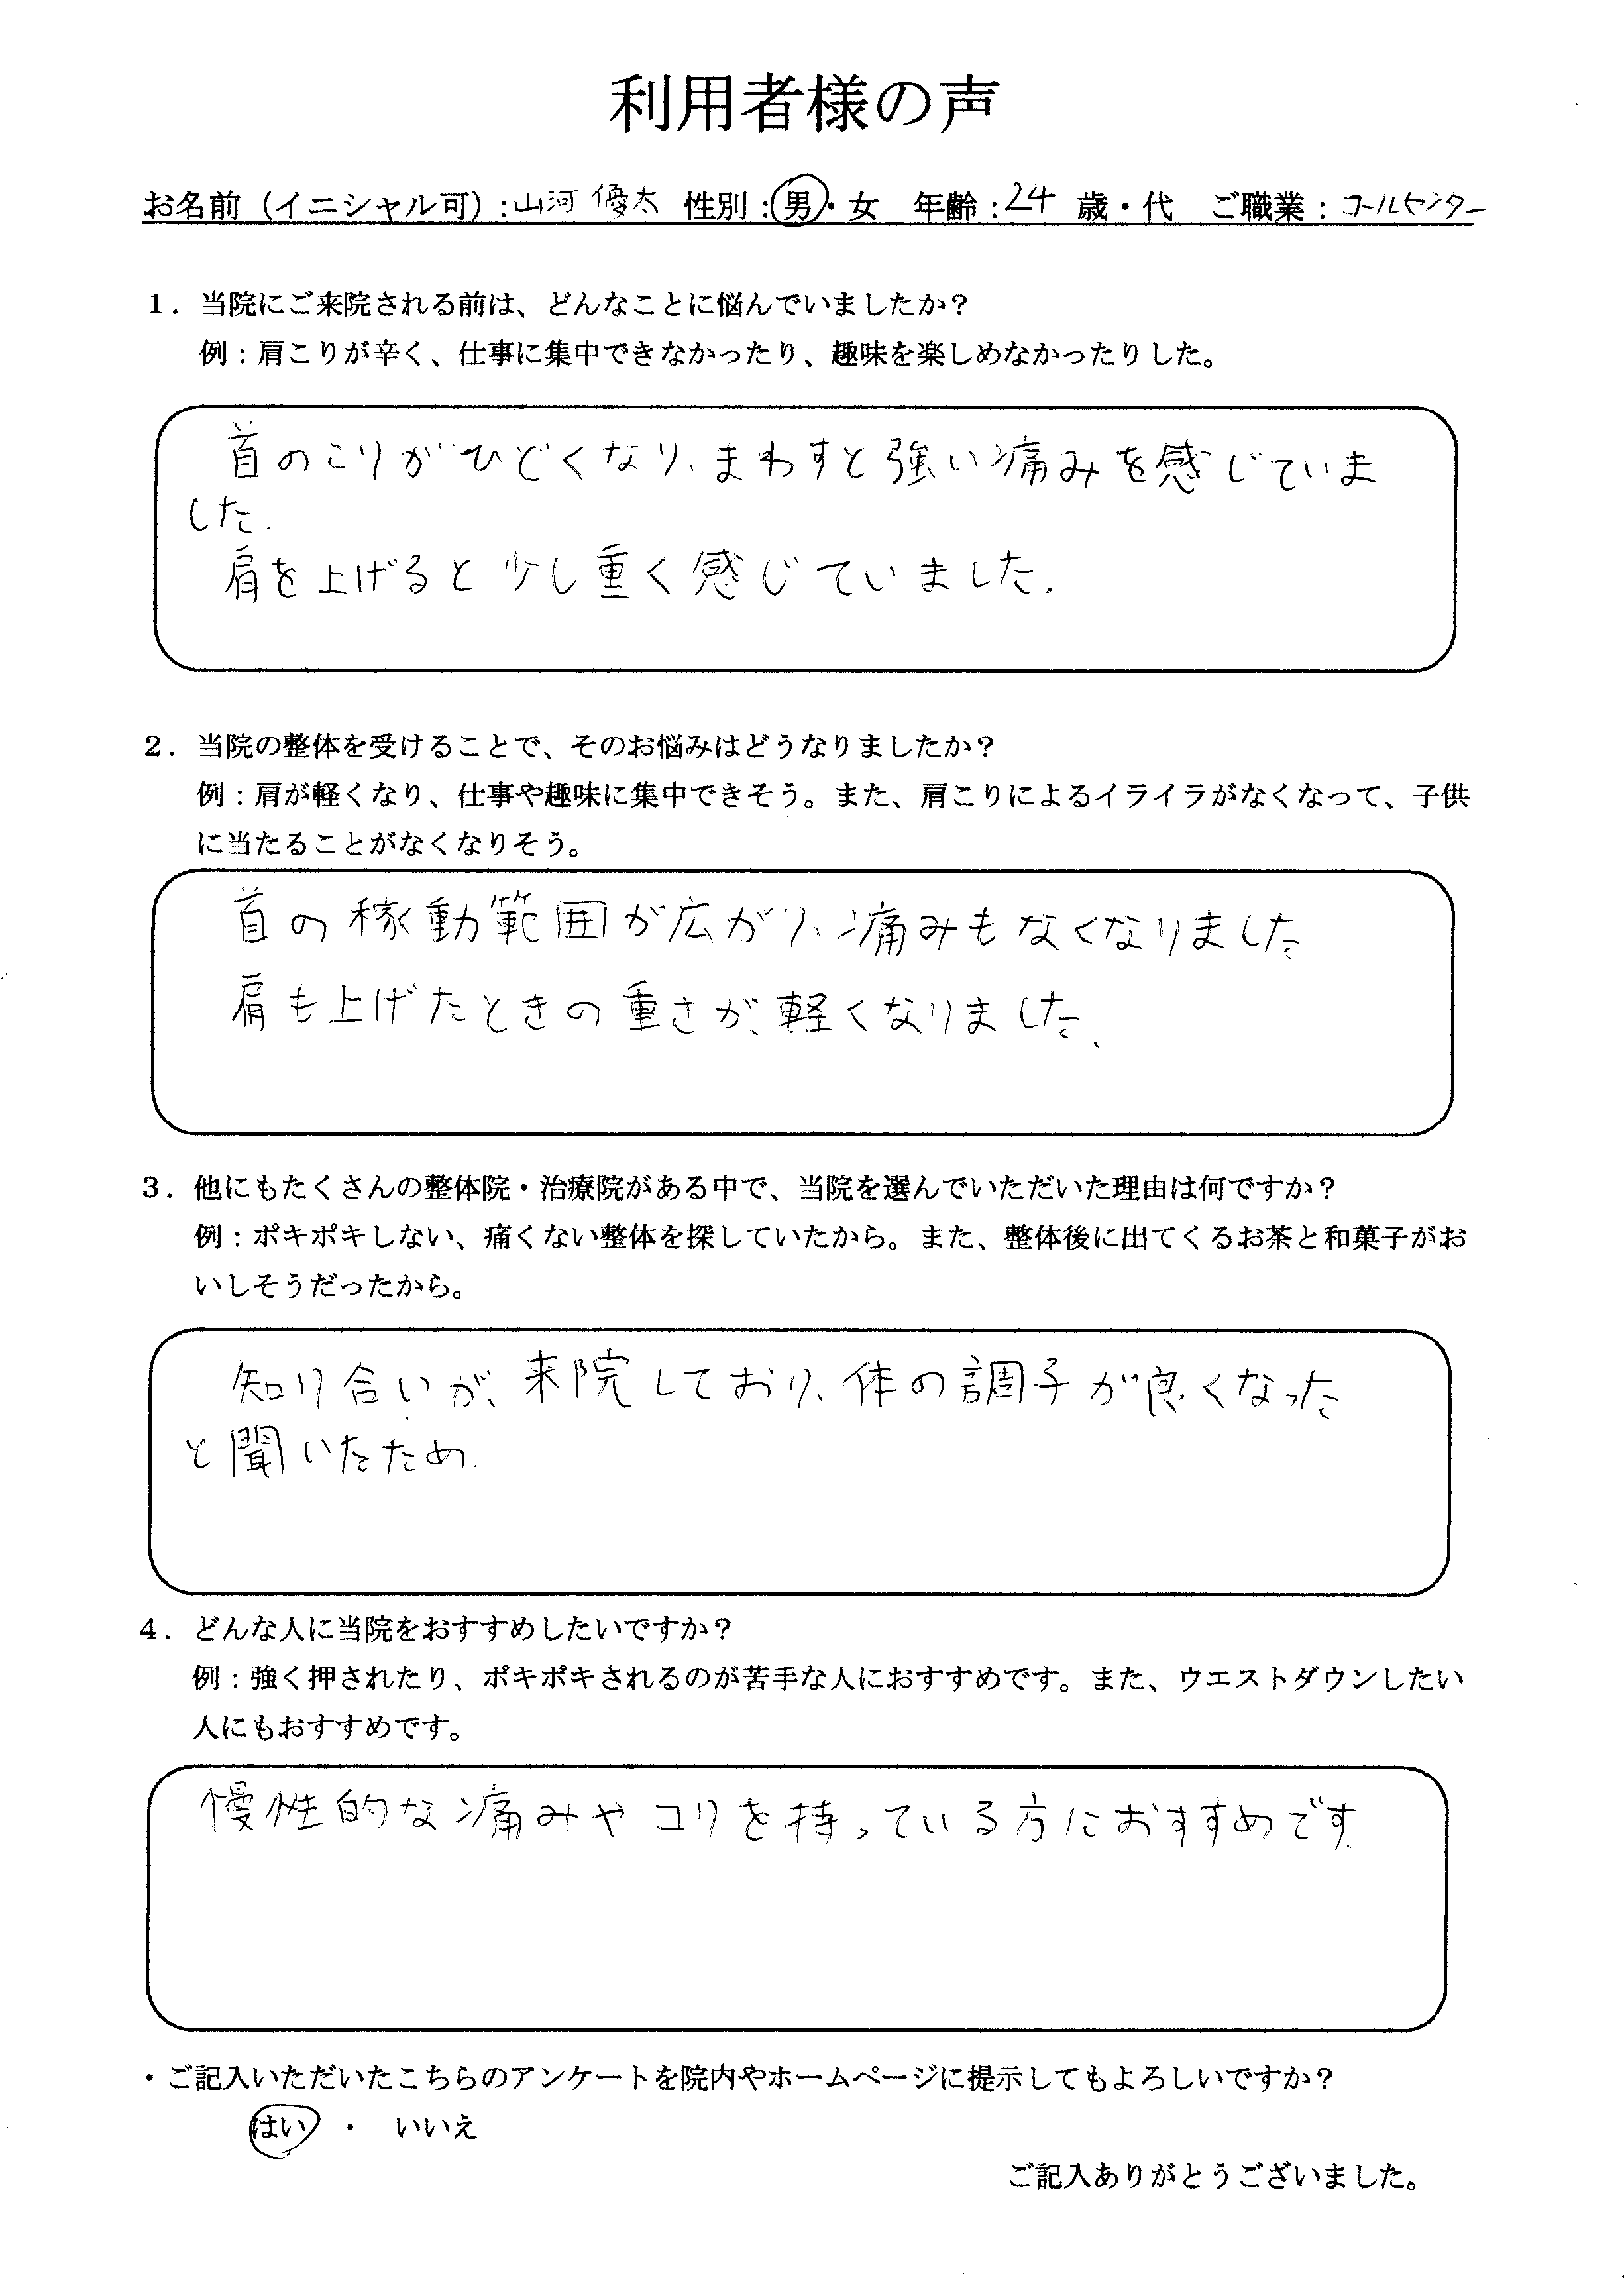 利用者様の声
お名前（イニシャル可）：山河 優太 性別：男・女 年齢：24 歳・代 ご職業：コールセンター
１．当院にご来院される前は、どんなことに悩んでいましたか？
例：肩こりが辛く、仕事に集中できなかったり、趣味を楽しめなかったりした。
首のこりがひどくなり、まわすと強い痛みを感じていま
した.
肩を上げると少し重く感じていました.
２．当院の整体を受けることで、そのお悩みはどうなりましたか？
例：肩が軽くなり、仕事や趣味に集中できそう。また、肩こりによるイライラがなくなって、子供
に当たることがなくなりそう。
首の稼動範囲が広がり、痛みもなくなりました
肩も上げたときの重さが、軽くなりました、
３．他にもたくさんの整体院・治療院がある中で、当院を選んでいただいた理由は何ですか？
例：ポキポキしない、痛くない整体を探していたから。また、整体後に出てくるお茶と和菓子がお
いしそうだったから。
知り合いが、来院しており、体の調子が良くなった
と聞いたため.
４．どんな人に当院をおすすめしたいですか？
例：強く押されたり、ポキポキされるのが苦手な人におすすめです。また、ウエストダウンしたい
人にもおすすめです。
慢性的な痛みやコリを持っている方におすすめです
・ご記入いただいたこちらのアンケートを院内やホームページに提示してもよろしいですか？
はい ・ いいえ
ご記入ありがとうございました。